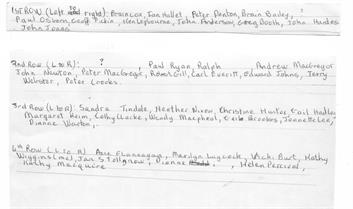 1ST ROW (Left to right): Brian Cox, Ian Hollet, Peter Denton, Brain Bailey, ?
Paul Osborn, Geoff Ken Lepbourne, John Anderson, Greg Booth, John Hardes
John Jones
2nd Row (L to R): ?, Paul Ryan, Ralph Andrew MacGregor
John Newton, Peter MacGregor, Robert Gill, Carl Everitt, Edward Johns, Jerry
Webster, Peter Crooks.
3rd Row (L to R): Sandra Tindale, Heather Nixon, Christine Hunter, Gail Hadley
Margaret Heim, Cathy Clacke, Wendy Macpheal, Brookes, Jannette Lee,
Dianne Warton,
4th Row (L to R) Ann Flannagan, Marilyn Luycock, Vicki Burt, Kathy
Wiggins Jan Stollgrow, Dianne , Helen Percival,
Kathy Macquire